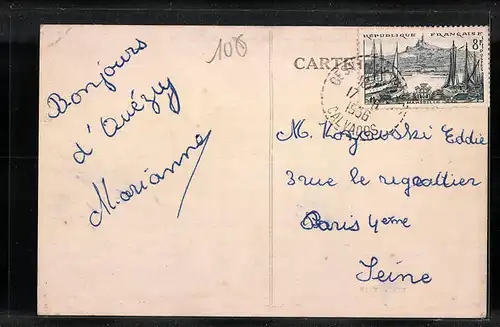 Bonjours
d'Quézy
Marianne
106
CARTE
RÉPUBLIQUE FRANÇAISE
8F
MARSEILLE
17
1956
CALVADOS
M. Eddie
3 rue le regrattier
Paris 4eme
Seine